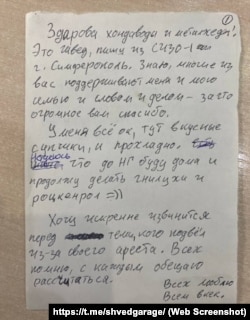 1
Здарова хондаводы и
Это швед, пишу из СИЗО-1
г. Симферополь. Знаю, многие из
вас поддерживают меня и мою
семью и словом и делом - за это
огромное вам спасибо.
У меня всё ок, тут вкусные
сушки, и прохладно.
что до НГ буду дома и
продолжу делать гнилухи и
рокценрол =))
Хочу искренне извинится
перед теми, кого подвёл
из-за своего ареста. Всех
помню, с каждым обещаю
рассчитаться.
Всех люблю
Всем
https://t.me/shvedgarage/ (Web Screenshot)